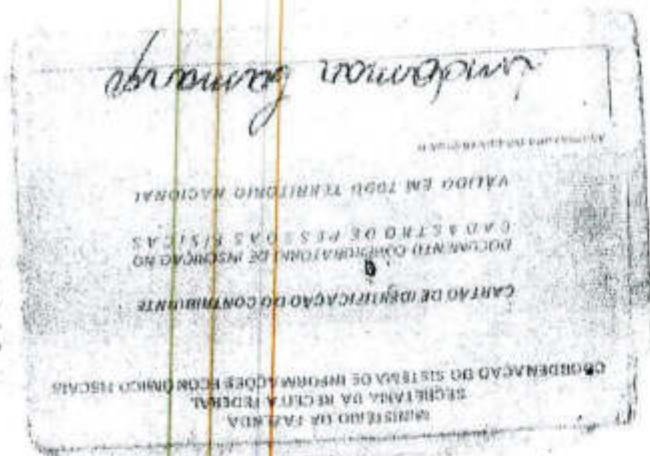 MINISTÉRIO DA FAZENDA
SECRETARIA DA RECEITA FEDERAL
COORDENAÇÃO DO SISTEMA DE INFORMAÇÕES ECONÔMICO FISCAIS
CARTÃO DE IDENTIFICAÇÃO DO CONTRIBUINTE
DOCUMENTO COMPROBATÓRIO DE INSCRIÇÃO NO
CADASTRO DE PESSOAS FÍSICAS
VÁLIDO EM TODO TERRITÓRIO NACIONAL